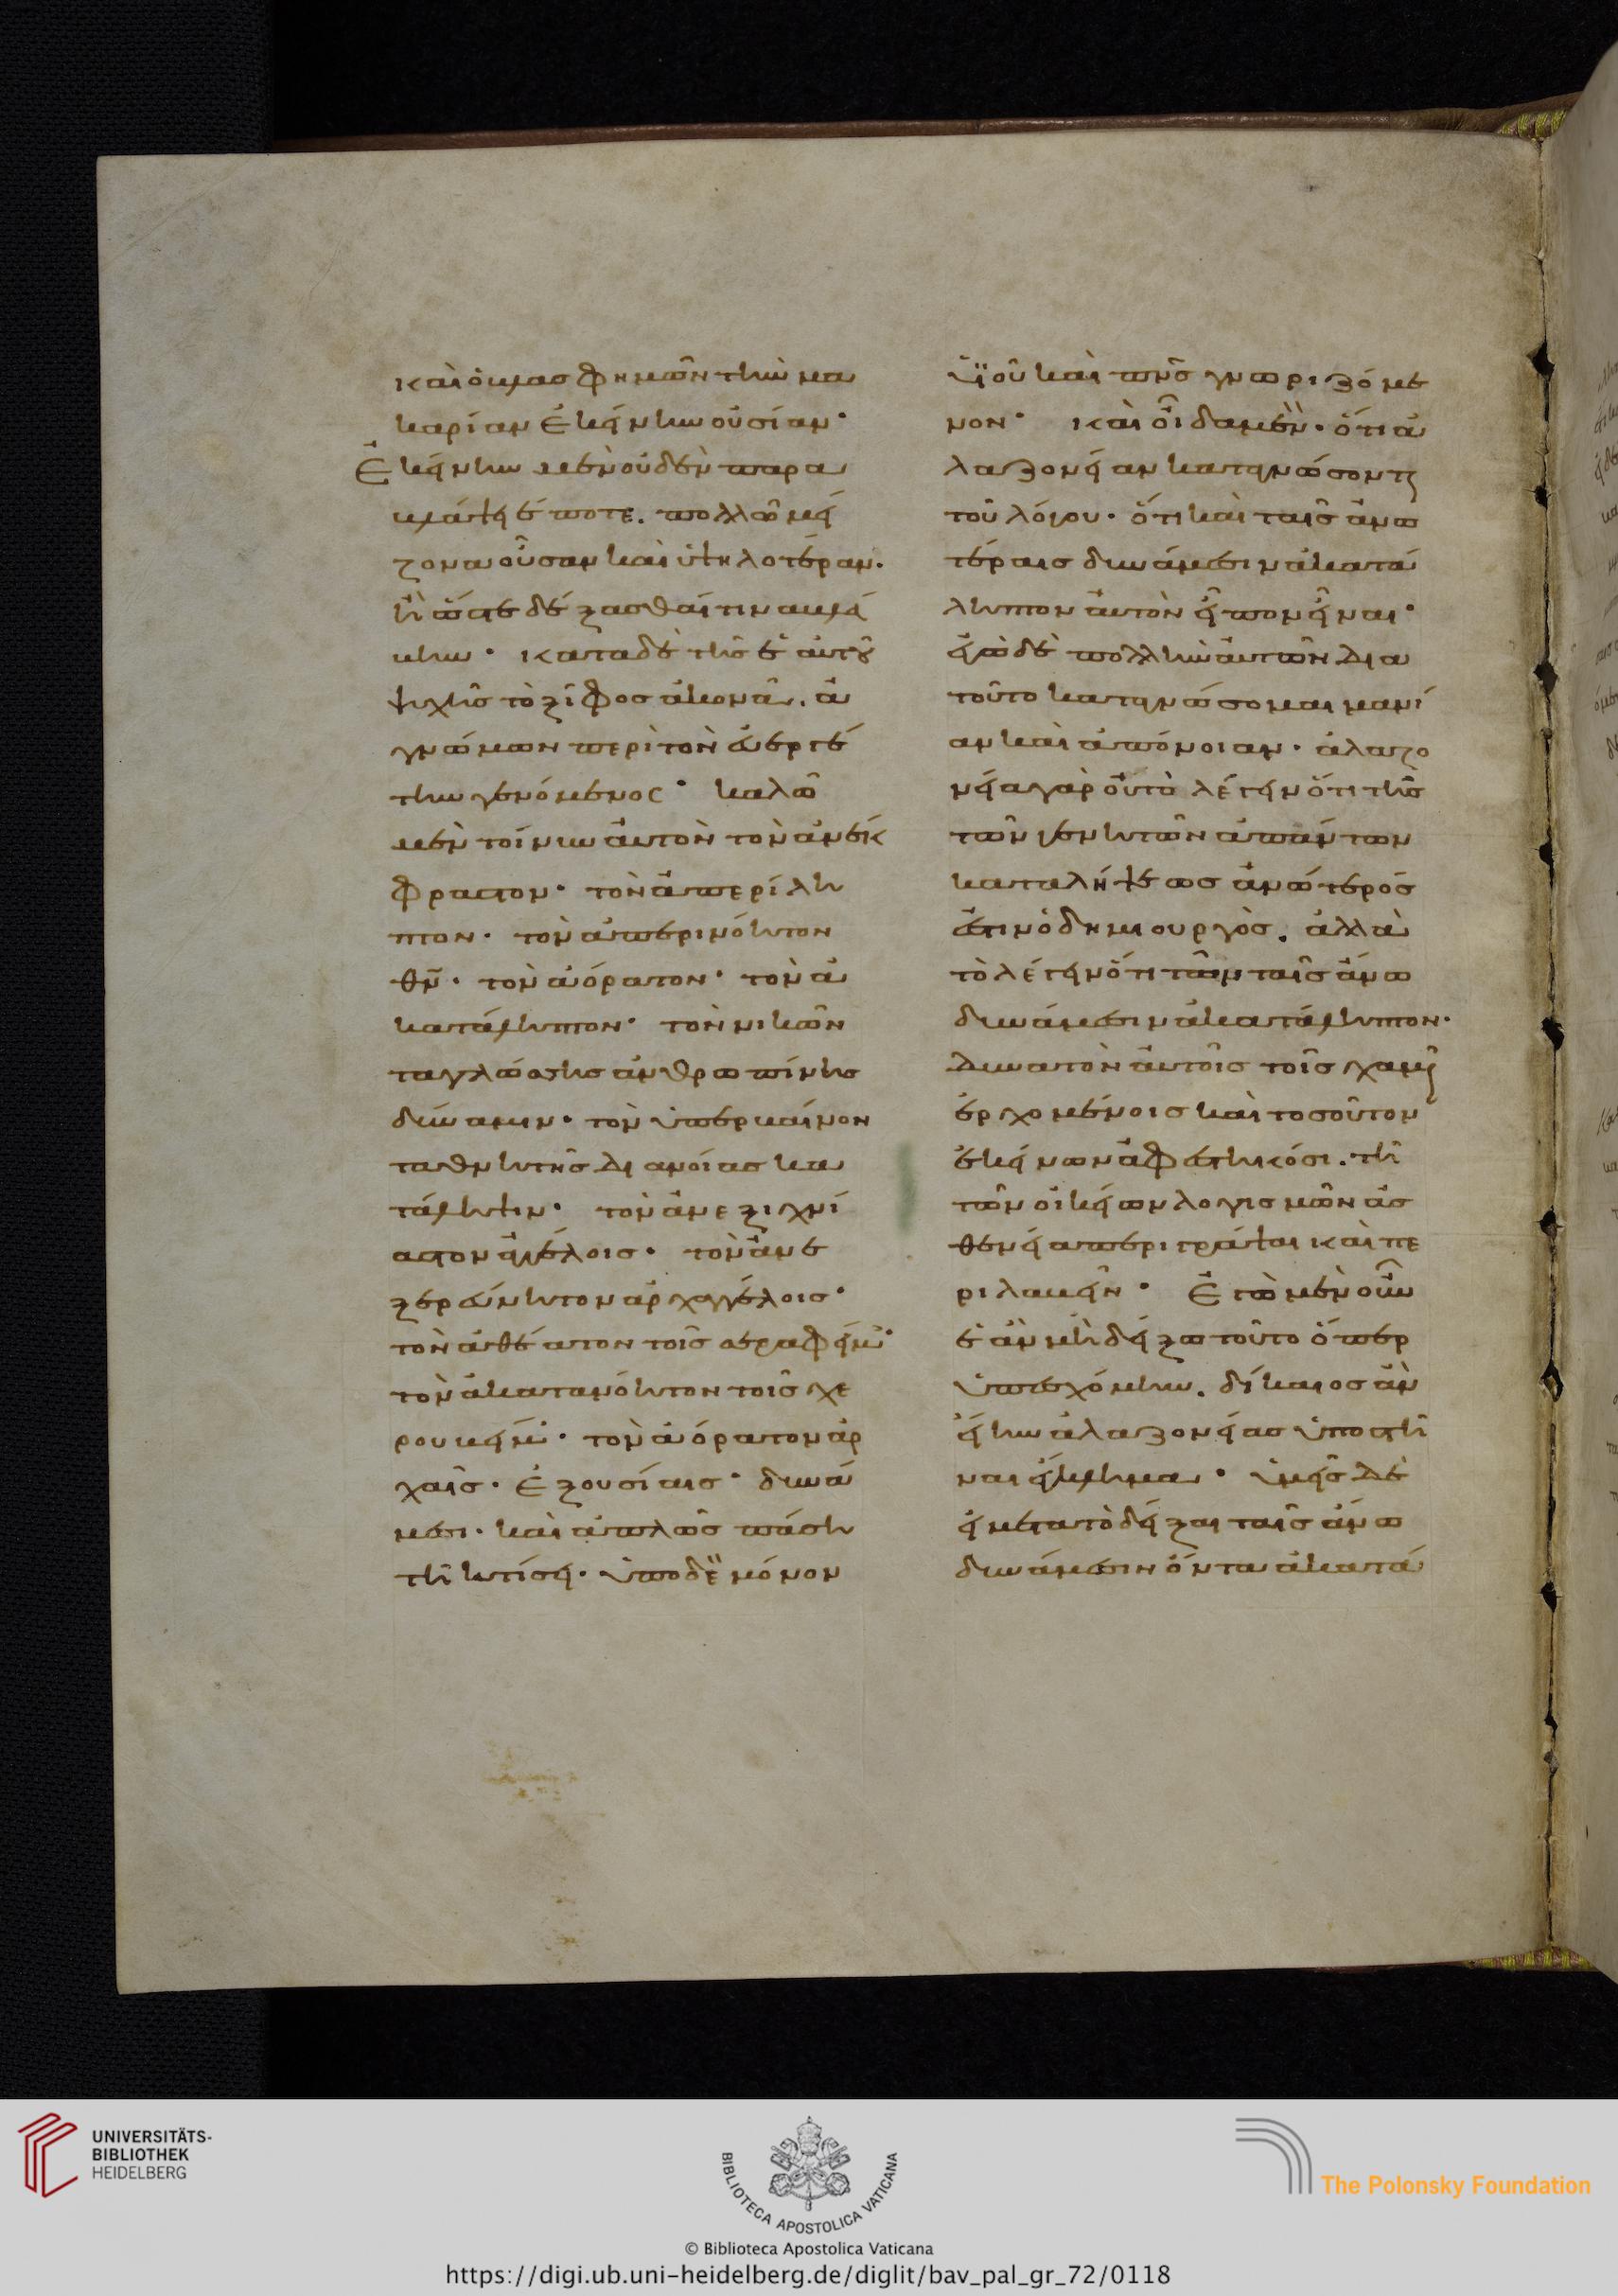 καὶ ὁ βλασφημῶν τὴν μα
καρίαν ἐκείνην οὐσίαν·
Ἐκείνην μὲν οὐδὲν παρα
βλάψειέ ποτε. πολλῷ μεί
ζονα οὖσαν καὶ ὑψηλοτέραν.
ἢ ὥστε δέξασθαί τινα βλά
βην· κατὰ δὲ τῆς ἑαυτοῦ
ψυχῆς τὸ ξίφος ἀκονᾷ. ἀ
γνώμων περὶ τὸν εὐεργέ
την γενόμενος· καλῶ
μὲν τοίνυν αὐτὸν τὸν ἀνέκ
φραστον· τὸν ἀπερίλη
πτον· τὸν ἀπερινόητον
θν· τὸν ἀόρατον· τὸν ἀ
κατάληπτον· τὸν νικῶν
τα γλώσσης ἀνθρωπίνης
δύναμιν· τὸν ὑπερβαίνον
τα θνητῆς διανοίας κα
τάληψιν· τὸν ἀνεξιχνί
αστον ἀγγέλοις· τὸν ἀνε
ξερεύνητον ἀρχαγγέλοις·
τὸν ἀθέατον τοῖς σεραφείμ·
τὸν ἀκατανόητον τοῖς χε
ρουβείμ· τὸν ἀόρατον ἀρ
χαῖς· ἐξουσίαις· δυνά
μεσι· καὶ ἁπλῶς πάσῃ
τῇ κτίσει· ὑπὸ δὲ μόνον
ϋἱοῦ καὶ πνς γνωριζόμε
νον· καὶ οἶδα μὲν· ὅτι ἀ
λαζονείαν καταγνώσοντ
τοῦ λόγου· ὅτι καὶ ταῖς ἀνω
τέραις δυνάμεσιν ἀκατά
ληπτον αὐτὸν εἶπον εἶναι·
ἐγὼ δὲ πολλὴν αὐτῶν δια
τοῦτο καταγνώσομαι μανί
αν καὶ ἀπόνοιαν· ἀλαζο
νεία γὰρ οὐ τὸ λέγειν ὅτι τῆς
τῶν γενητῶν ἁπάντων
καταλήψεως ἀνώτερός
ἐστιν ὁ δημιουργὸς. ἀλλὰ
τὸ λέγειν ὅτι τῶν ταῖς ἄνω
δυνάμεσιν ἀκατάληπτον·
δυνατὸν αὐτοῖς τοῖς χαμαὶ
ἐρχομένοις καὶ τοσοῦτον
ἐκείνων ἀφεστηκόσι. τῇ
τῶν οἰκείων λογισμῶν ἀσ
θενεία περιγράψαι καὶ πε
ριλαβεῖν· Ἐγὼ μὲν οὖν
ἐὰν μὴ δείξω τοῦτο ὅπερ
ὑπεσχόμην. δίκαιος ἂν
εἴην ἀλαζονείας ὑποστῆ
ναι ἔγκλημα· ὑμεῖς δὲ
εἰ μετὰ τὸ δεῖξαι ταῖς ἄνω
δυνάμεσιν ὄντα ἀκατά
UNIVERSITÄTS-
BIBLIOTHEK
HEIDELBERG
BIBLIOTECA APOSTOLICA VATICANA
The Polonsky Foundation
© Biblioteca Apostolica Vaticana
https://digi.ub.uni-heidelberg.de/diglit/bav_pal_gr_72/0118